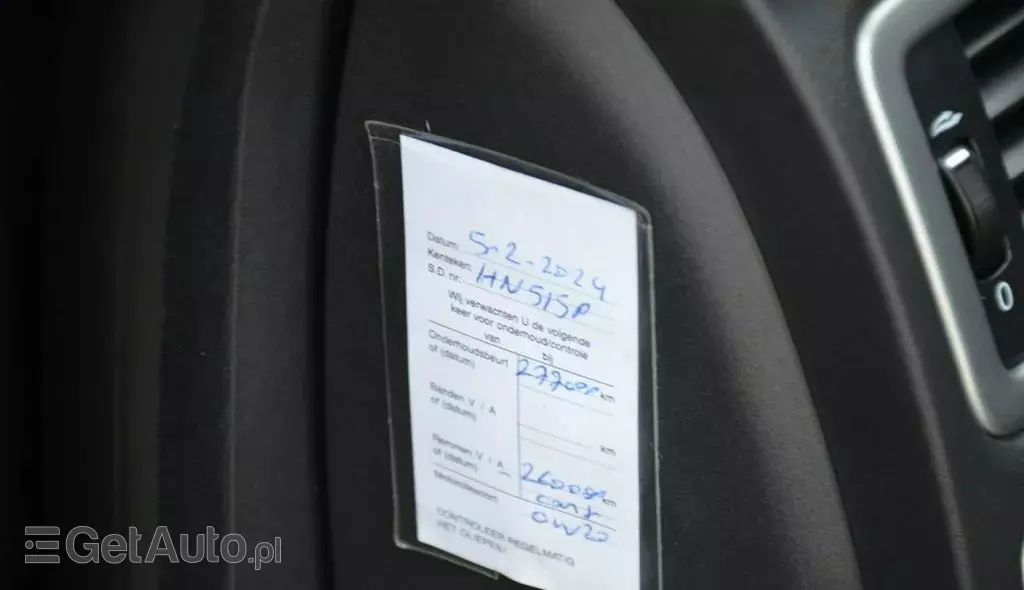 Datum: 5-2-2024
Kenteken: HN515P
S.D. nr.:
Wij verwachten U de volgende
keer voor onderhoud/controle
van bij
Onderhoudsbeurt 277000 km
of (datum)
Banden V / A
of (datum) km
Remmen V / A 260000 km
of (datum) cont
Motoroliesoort 0W20
CONTROLEER REGELMATIG
HET OLIEPEIL!
0
GetAuto.pl